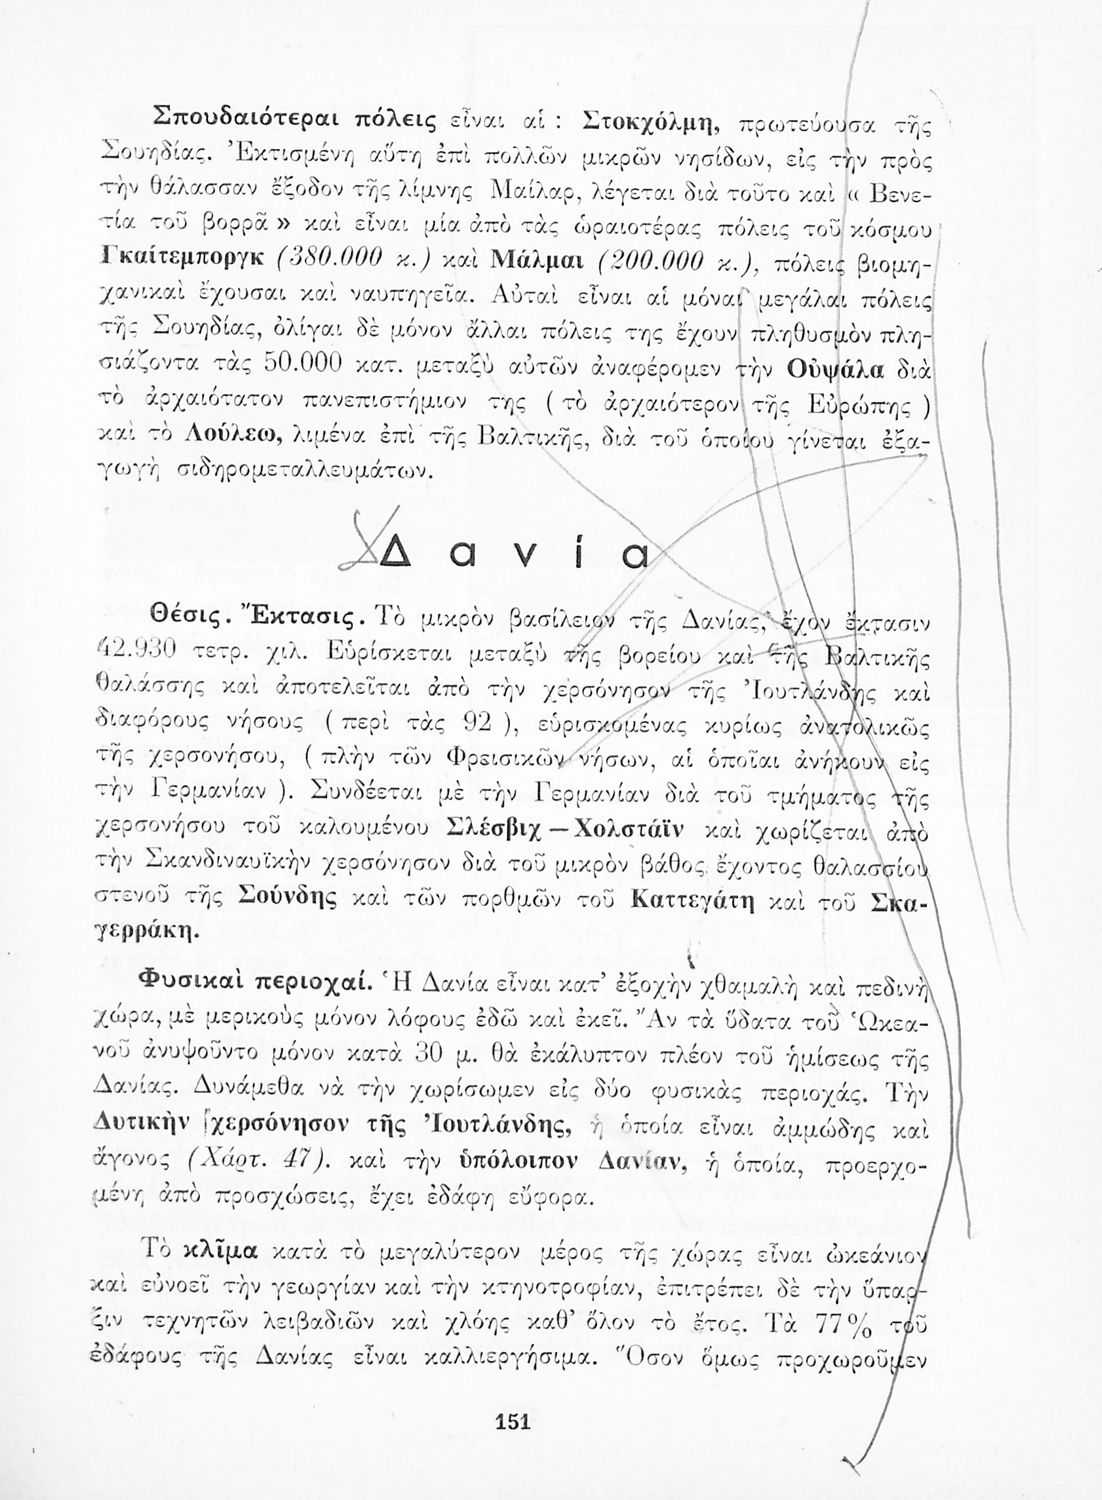 Σπουδαιότεραι πόλεις εἶναι αἱ : Στοκχόλμη, πρωτεύουσα τῆς
Σουηδίας. Ἐκτισμένη αὕτη ἐπὶ πολλῶν μικρῶν νησίδων, εἰς τὴν πρὸς
τὴν θάλασσαν ἔξοδον τῆς λίμνης Μαίλαρ, λέγεται διὰ τοῦτο καὶ « Βενε-
τία τοῦ βορρᾶ » καὶ εἶναι μία ἀπὸ τὰς ὡραιοτέρας πόλεις τοῦ κόσμου
Γκαίτεμποργκ (380.000 κ.) καὶ Μάλμαι (200.000 κ.), πόλεις βιομη-
χανικαὶ ἔχουσαι καὶ ναυπηγεῖα. Αὐταὶ εἶναι αἱ μόναι μεγάλαι πόλεις
τῆς Σουηδίας, ὀλίγαι δὲ μόνον ἄλλαι πόλεις της ἔχουν πληθυσμὸν πλη-
σιάζοντα τὰς 50.000 κατ. μεταξὺ αὐτῶν ἀναφέρομεν τὴν Οὐψάλα διὰ
τὸ ἀρχαιότατον πανεπιστήμιον της ( τὸ ἀρχαιότερον τῆς Εὐρώπης )
καὶ τὸ Λούλεω, λιμένα ἐπὶ τῆς Βαλτικῆς, διὰ τοῦ ὁποίου γίνεται ἐξα-
γωγὴ σιδηρομεταλλευμάτων.
Δανία
Θέσις. Ἔκτασις. Τὸ μικρὸν βασίλειον τῆς Δανίας, ἔχον ἔκτασιν
42.930 τετρ. χιλ. Εὑρίσκεται μεταξὺ τῆς βορείου καὶ τῆς Βαλτικῆς
θαλάσσης καὶ ἀποτελεῖται ἀπὸ τὴν χερσόνησον τῆς Ἰουτλάνδης καὶ
διαφόρους νήσους ( περὶ τὰς 92 ), εὑρισκομένας κυρίως ἀνατολικῶς
τῆς χερσονήσου, ( πλὴν τῶν Φρεισικῶν νήσων, αἱ ὁποῖαι ἀνήκουν εἰς
τὴν Γερμανίαν ). Συνδέεται μὲ τὴν Γερμανίαν διὰ τοῦ τμήματος τῆς
χερσονήσου τοῦ καλουμένου Σλέσβιχ – Χολστάϊν καὶ χωρίζεται ἀπὸ
τὴν Σκανδιναυϊκὴν χερσόνησον διὰ τοῦ μικρὸν βάθος ἔχοντος θαλασσίου
στενοῦ τῆς Σούνδης καὶ τῶν πορθμῶν τοῦ Καττεγάτη καὶ τοῦ Σκα-
γερράκη.
Φυσικαὶ περιοχαί. Ἡ Δανία εἶναι κατ' ἐξοχὴν χθαμαλὴ καὶ πεδινὴ
χώρα, μὲ μερικοὺς μόνον λόφους ἐδῶ καὶ ἐκεῖ. Ἂν τὰ ὕδατα τοῦ Ὠκεα-
νοῦ ἀνυψοῦντο μόνον κατὰ 30 μ. θὰ ἐκάλυπτον πλέον τοῦ ἡμίσεως τῆς
Δανίας. Δυνάμεθα νὰ τὴν χωρίσωμεν εἰς δύο φυσικὰς περιοχάς. Τὴν
Δυτικὴν χερσόνησον τῆς Ἰουτλάνδης, ἡ ὁποία εἶναι ἀμμώδης καὶ
ἄγονος (Χάρτ. 47). καὶ τὴν ὑπόλοιπον Δανίαν, ἡ ὁποία, προερχο-
μένη ἀπὸ προσχώσεις, ἔχει ἐδάφη εὔφορα.
Τὸ κλῖμα κατὰ τὸ μεγαλύτερον μέρος τῆς χώρας εἶναι ὠκεάνιον
καὶ εὐνοεῖ τὴν γεωργίαν καὶ τὴν κτηνοτροφίαν, ἐπιτρέπει δὲ τὴν ὕπαρ-
ξιν τεχνητῶν λειβαδιῶν καὶ χλόης καθ' ὅλον τὸ ἔτος. Τὰ 77% τοῦ
ἐδάφους τῆς Δανίας εἶναι καλλιεργήσιμα. Ὅσον ὅμως προχωροῦμεν
151